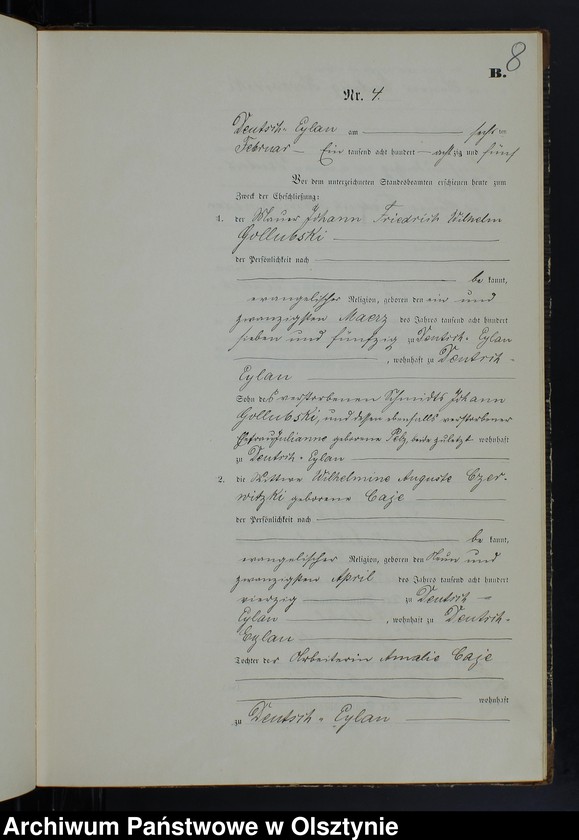 B. 8
Nr. 4.
Deutsch-Eylau am sechsten
Februar Ein tausend acht hundert achtzig und fünf
Vor dem unterzeichneten Standesbeamten erschienen heute zum
Zweck der Eheschließung:
1. der Maurer Johann Friedrich Wilhelm
Gollubski
der Persönlichkeit nach
be kannt,
evangelischer Religion, geboren den ein und
zwanzigsten Maerz des Jahres tausend acht hundert
sieben und fünfzig zu Deutsch-Eylau
, wohnhaft zu Deutsch-
Eylau
Sohn des verstorbenen Schmidts Johann
Gollubski, und dessen ebenfalls verstorbener
Ehefrau Julianne geborene Pelz, beide zuletzt wohnhaft
zu Deutsch-Eylau
2. die Wittwe Wilhelmine Auguste Czer-
witzki geborene Caje
der Persönlichkeit nach
be kannt,
evangelischer Religion, geboren den Neun und
zwanzigsten April des Jahres tausend acht hundert
vierzig zu Deutsch-
Eylau , wohnhaft zu Deutsch-
Eylau
Tochter der Arbeiterin Amalie Caje
wohnhaft
zu Deutsch-Eylau
Archiwum Państwowe w Olsztynie